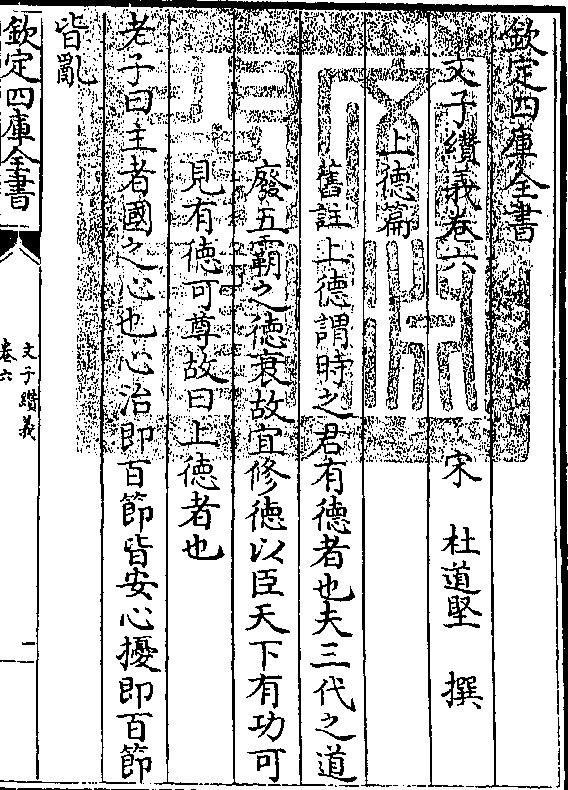 欽定四庫全書
文子纉義卷六
宋　杜道堅　撰
上徳篇
舊註上徳謂時之君有徳者也夫三代之道
廢五霸之徳衰故宜修徳以臣天下有功可
見有徳可尊故曰上徳者也
老子曰主者國之心也心治即百節皆安心擾即百節
皆亂
欽定四庫全書
文子纉義
卷六
一